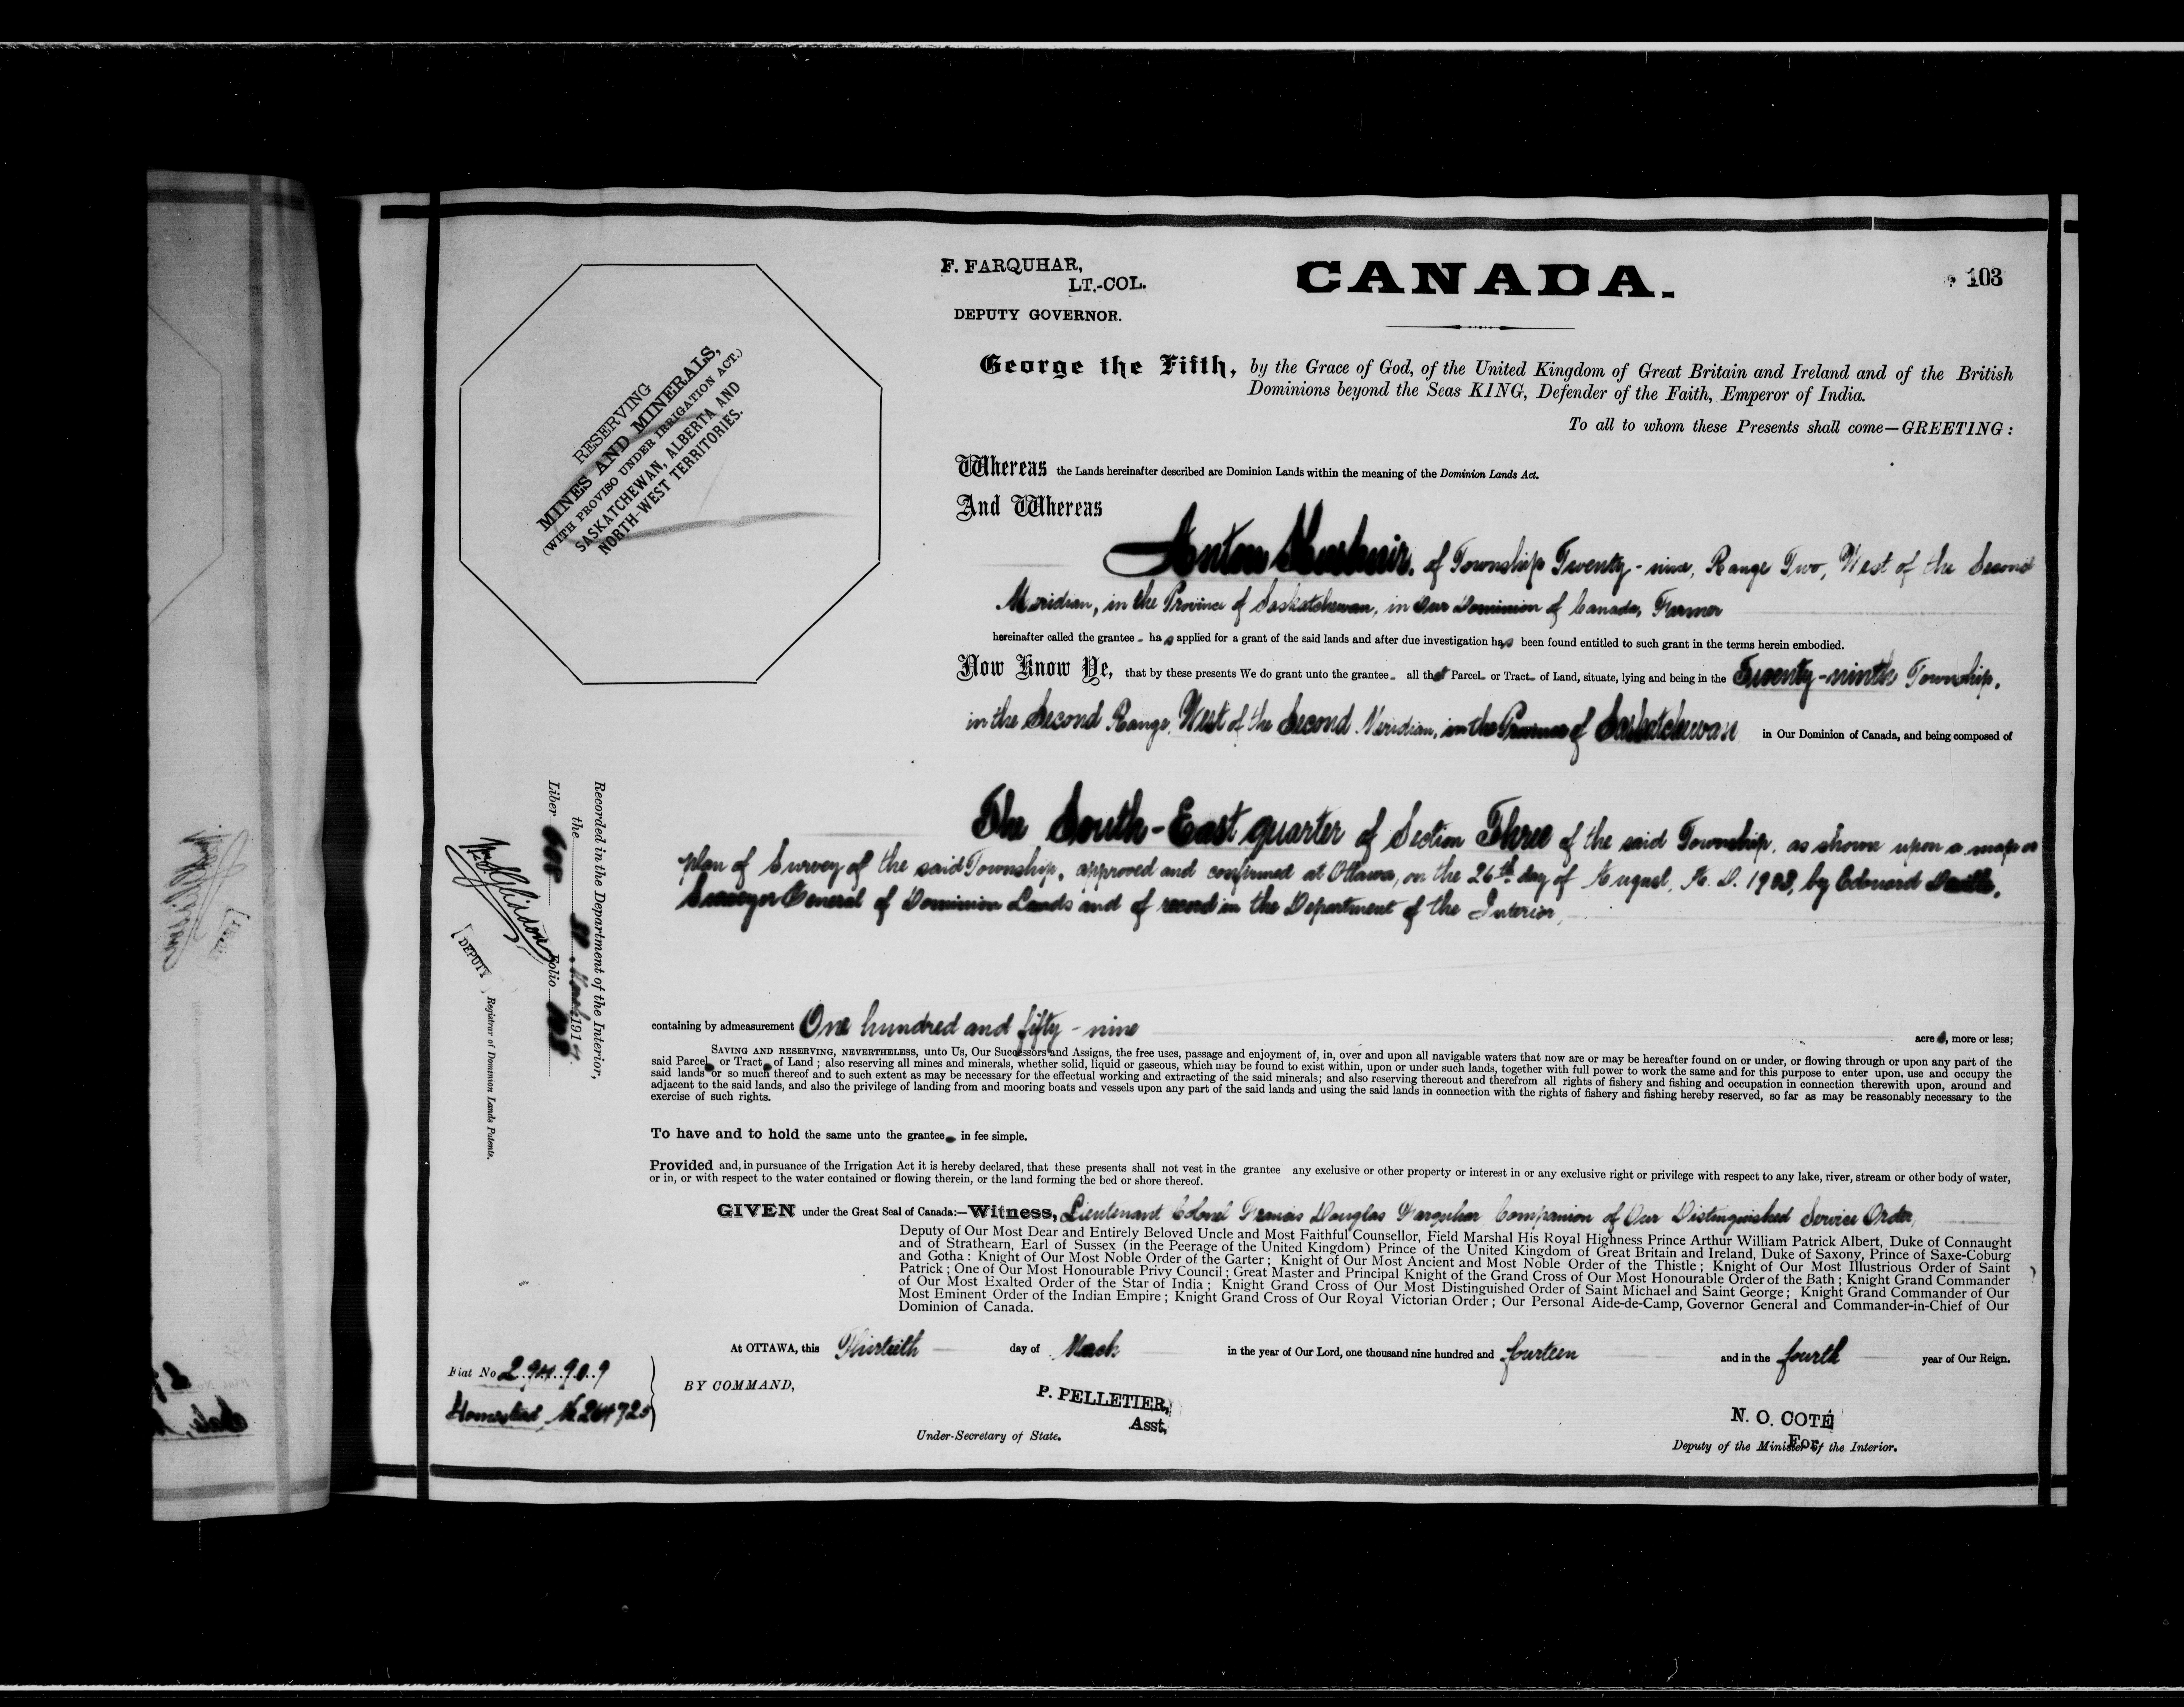 F. FARQUHAR,
LT.-COL.
DEPUTY GOVERNOR.
CANADA.
103
RESERVING
MINES AND MINERALS,
(WITH PROVISO UNDER IRRIGATION ACT.)
SASKATCHEWAN, ALBERTA AND
NORTH-WEST TERRITORIES.
George the Fifth, by the Grace of God, of the United Kingdom of Great Britain and Ireland and of the British
Dominions beyond the Seas KING, Defender of the Faith, Emperor of India.
To all to whom these Presents shall come—GREETING:
Whereas the Lands hereinafter described are Dominion Lands within the meaning of the Dominion Lands Act.
And Whereas
Anton of Township Twenty-nine, Range Two, West of the Second
Meridian, in the Province of Saskatchewan, in Our Dominion of Canada, Farmer
hereinafter called the grantee has applied for a grant of the said lands and after due investigation has been found entitled to such grant in the terms herein embodied.
Now Know Ye, that by these presents We do grant unto the grantee all that Parcel or Tract of Land, situate, lying and being in the Twenty-ninth Township,
in the Second Range, West of the Second Meridian, in the Province of Saskatchewan in Our Dominion of Canada, and being composed of
The South-East quarter of Section Three of the said Township, as shown upon a map or
plan of Survey of the said Township, approved and confirmed at Ottawa, on the 26th day of August, A. D. 1903, by Edouard Deville,
Surveyor General of Dominion Lands and of record in the Department of the Interior,
Recorded in the Department of the Interior,
the 30 March 1914.
Liber 608 Folio 103
[DEPUTY] Registrar of Dominion Lands Patents.
containing by admeasurement One hundred and fifty-nine acres, more or less;
SAVING AND RESERVING, NEVERTHELESS, unto Us, Our Successors and Assigns, the free uses, passage and enjoyment of, in, over and upon all navigable waters that now are or may be hereafter found on or under, or flowing through or upon any part of the
said Parcel or Tract of Land; also reserving all mines and minerals, whether solid, liquid or gaseous, which may be found to exist within, upon or under such lands, together with full power to work the same and for this purpose to enter upon, use and occupy the
said lands or so much thereof and to such extent as may be necessary for the effectual working and extracting of the said minerals; and also reserving thereout and therefrom all rights of fishery and fishing and occupation in connection therewith upon, around and
adjacent to the said lands, and also the privilege of landing from and mooring boats and vessels upon any part of the said lands and using the said lands in connection with the rights of fishery and fishing hereby reserved, so far as may be reasonably necessary to the
exercise of such rights.
To have and to hold the same unto the grantee in fee simple.
Provided and, in pursuance of the Irrigation Act it is hereby declared, that these presents shall not vest in the grantee any exclusive or other property or interest in or any exclusive right or privilege with respect to any lake, river, stream or other body of water,
or in, or with respect to the water contained or flowing therein, or the land forming the bed or shore thereof.
GIVEN under the Great Seal of Canada:—Witness, Lieutenant Colonel Francis Douglas Farquhar Companion of Our Distinguished Service Order,
Deputy of Our Most Dear and Entirely Beloved Uncle and Most Faithful Counsellor, Field Marshal His Royal Highness Prince Arthur William Patrick Albert, Duke of Connaught
and of Strathearn, Earl of Sussex (in the Peerage of the United Kingdom) Prince of the United Kingdom of Great Britain and Ireland, Duke of Saxony, Prince of Saxe-Coburg
and Gotha: Knight of Our Most Noble Order of the Garter; Knight of Our Most Ancient and Most Noble Order of the Thistle; Knight of Our Most Illustrious Order of Saint
Patrick; One of Our Most Honourable Privy Council; Great Master and Principal Knight of the Grand Cross of Our Most Honourable Order of the Bath; Knight Grand Commander
of Our Most Exalted Order of the Star of India; Knight Grand Cross of Our Most Distinguished Order of Saint Michael and Saint George; Knight Grand Commander of Our
Most Eminent Order of the Indian Empire; Knight Grand Cross of Our Royal Victorian Order; Our Personal Aide-de-Camp, Governor General and Commander-in-Chief of Our
Dominion of Canada.
At OTTAWA, this Thirtieth day of March in the year of Our Lord, one thousand nine hundred and fourteen and in the fourth year of Our Reign.
Fiat No 294909
Homestead, No 264725
BY COMMAND,
P. PELLETIER,
Asst,
Under-Secretary of State.
N. O. COTÉ
For
Deputy of the Minister of the Interior.